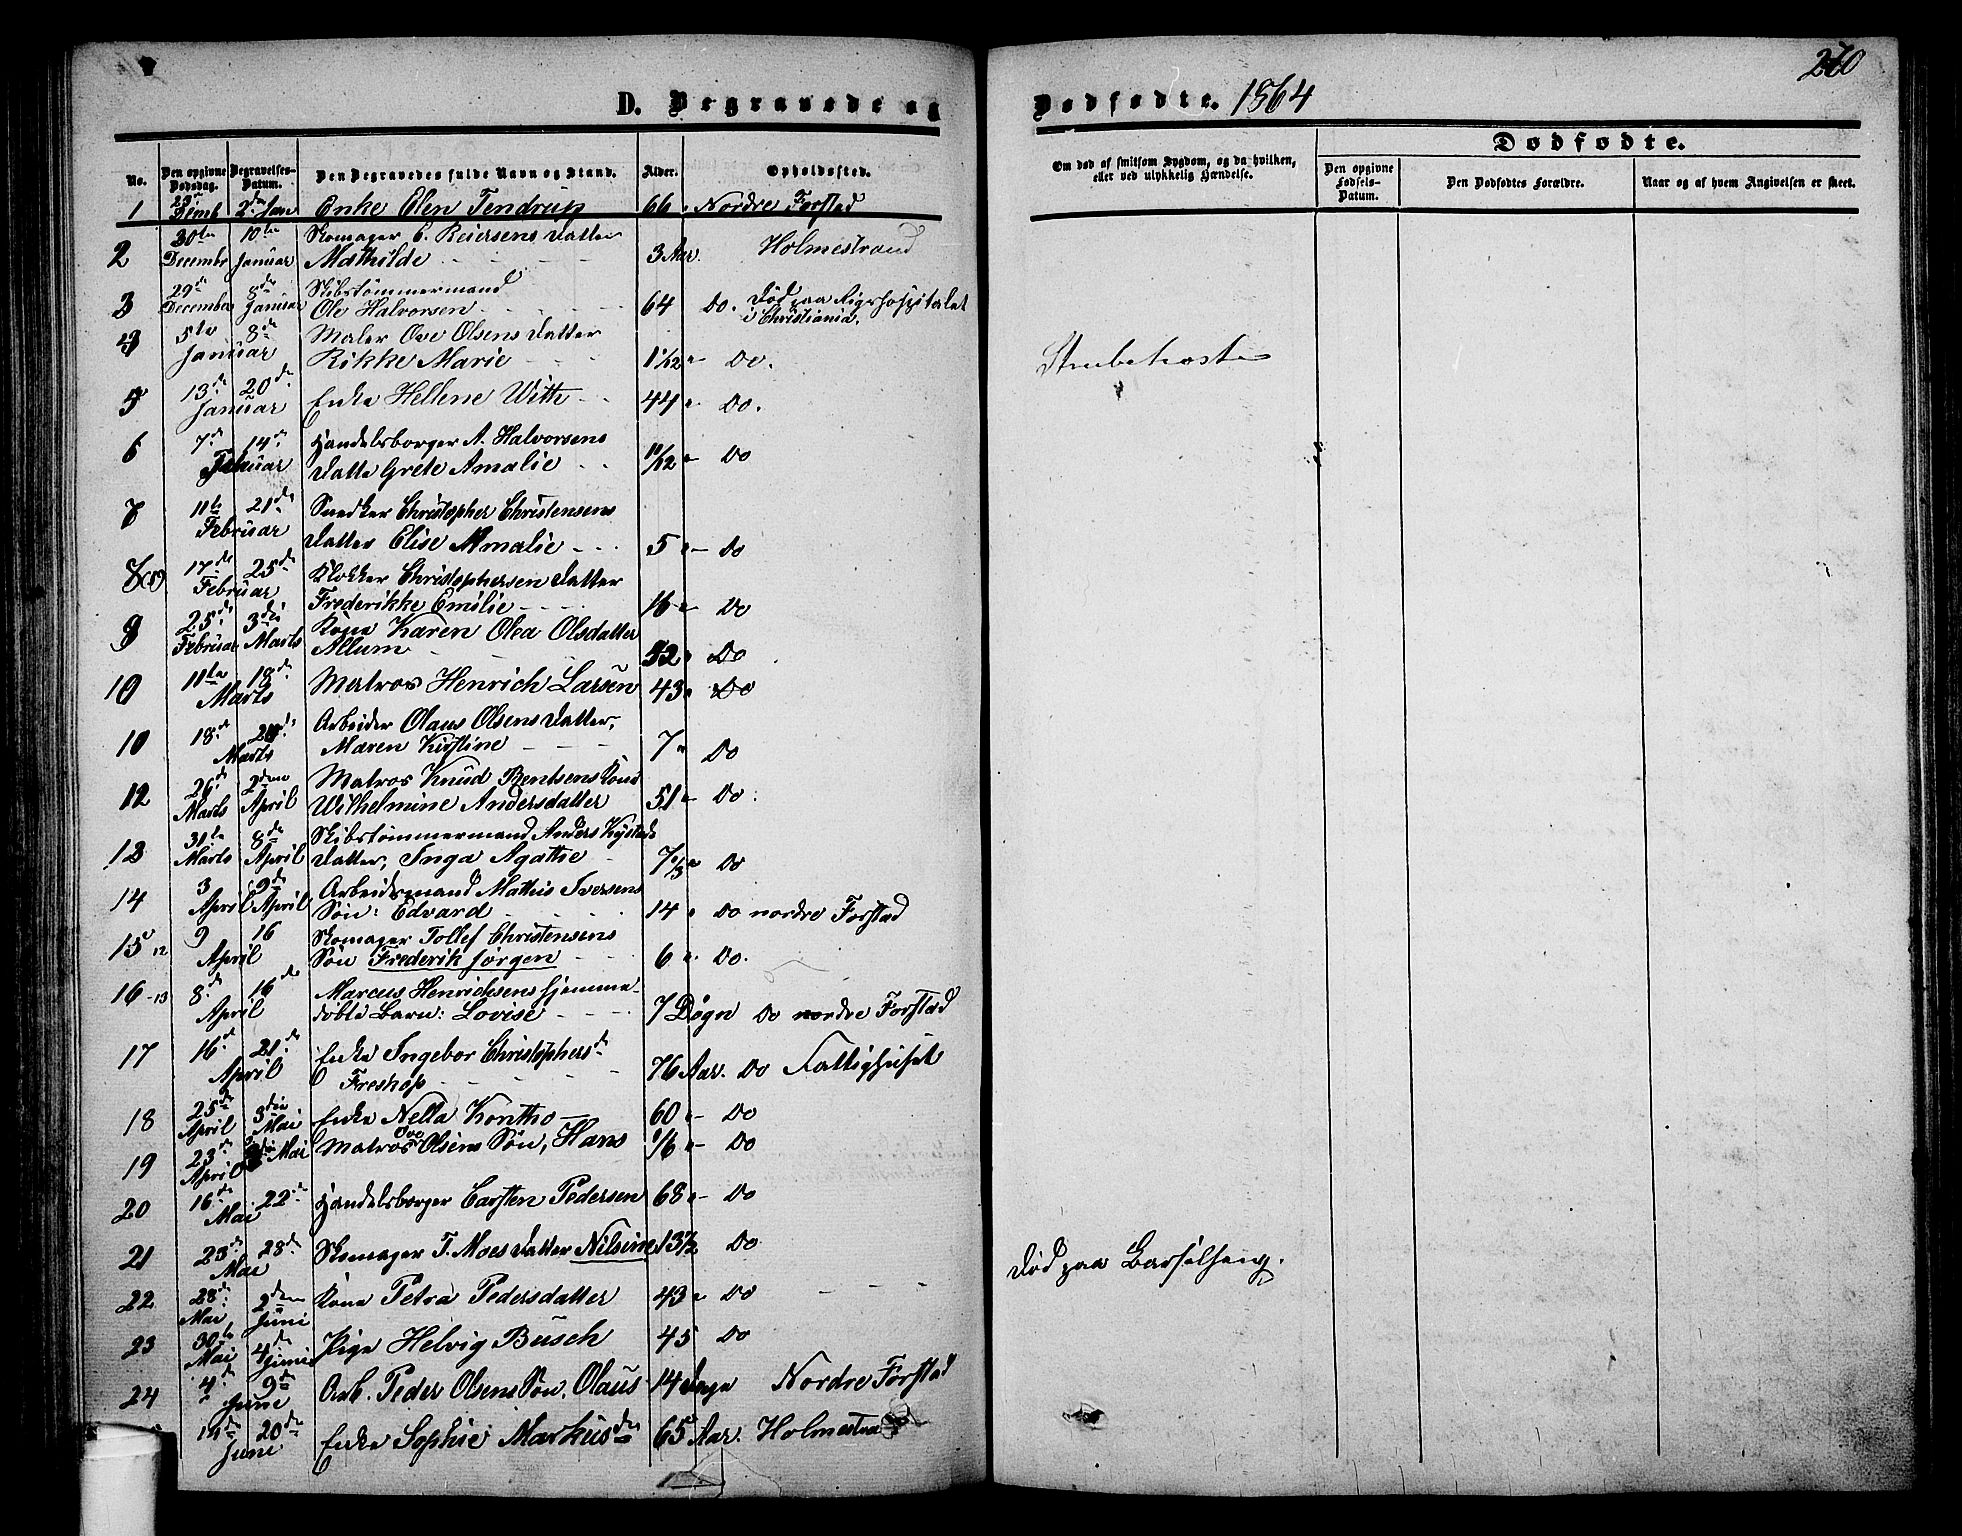 270
D. Begravede og
Dødfødte. 1864
No.
Den opgivne Dødsdag.
Begravelses-Datum.
Den Begravedes fulde Navn og Stand.
Alder.
Opholdssted.
Om død af smitsom Sygdom, og da hvilken,
eller ved ulykkelig Hændelse.
Dødfødte.
Den opgivne Fødsels-Datum.
Den Dødfødtes Forældre.
Naar og af hvem Angivelsen er skeet.
1 29 Decemb 2den Jan Enke Elen Tendrup 66 " Nordre Forstad
2 30te 10de Skomager E. Reiersens Datter
Decembr Januar Mathilde 3 Aar. Holmestrand
3 29de 8de Skibstømmermand
December Januar Ole Halvorsen 64 Do. Død paa Rigshospitalet
i Christiania.
4 5te 8de Maler Ove Olsens Datter
Januar Rikke Marie 1 1/12 " Do. Strubehoste
5 13de 20de
Januar Enke Hellene With 44 " Do.
6 7de 14de Handelsborger A. Halvorsens
Februar Datte Grete Amalie 11/12 - Do
7 11te 21de Snedker Christopher Christensens
Februar Datter Elise Amalie 5 " - Do
8 17de 25de Klokker Christophersen Datter
Februar Frederikke Emilie 16 " Do
9 25de 3die Kone Karen Olea Olsdatter
Februar Marts Allum 52 " Do
10 11te 18de
Marts Matros Henrich Larsen 43 " Do
10 18de Arbeider Olaus Olsens Datter,
Marts Maren Kirstine 7 " Do
12 26de 2den Matros Knud Bentsens Kone
Marts April Wilhelmine Andersdatter 51 - Do
13 31te 8de Skibstømmermand Anders
Marts April Datter, Inga Agathe 7 1/3 " Do
14 3 9de Arbeidsmand Mathis Iversens
April April Søn: Edvard 14 " Do nordre Forstad
15 12 9 16 Skomager Tollef Christensens
April Søn Frederik Jørgen 6 " Do.
16-13 8de 16de Marcus Henrichsens hjemme-
April døbte Barn: Lovise 7 Døgn Do nordre Forstad
17 16de 21de Enke Ingebor Christophersd
April Freshop 76 Aar. Do Fattighuset
18 25de 3die
April Mai Enke Nella Kontho 60 " - Do
19 23de Mai Matros Ove Olsens Søn, Hans 1/6 " - Do
April
20 16de 22de Handelsborger Carsten Pedersen 68 " - Do
Mai
21 23de 28de Skomager T. Moes Datter Nilsine 13 1/2 Do
Mai
Død paa Barselseng.
22 28de 2den Kone Petra Pedersdatter 43 " Do
Mai Juni
23 30te 4de Pige Helvig Busch 45 Do
Mai Juni
24 4de 9de Arb. Peder Olsens Søn, Olaus 14 Dage Nordre Forstad
June
20de Enke Sophie Markusd 65 Aar. Holmestrand
June